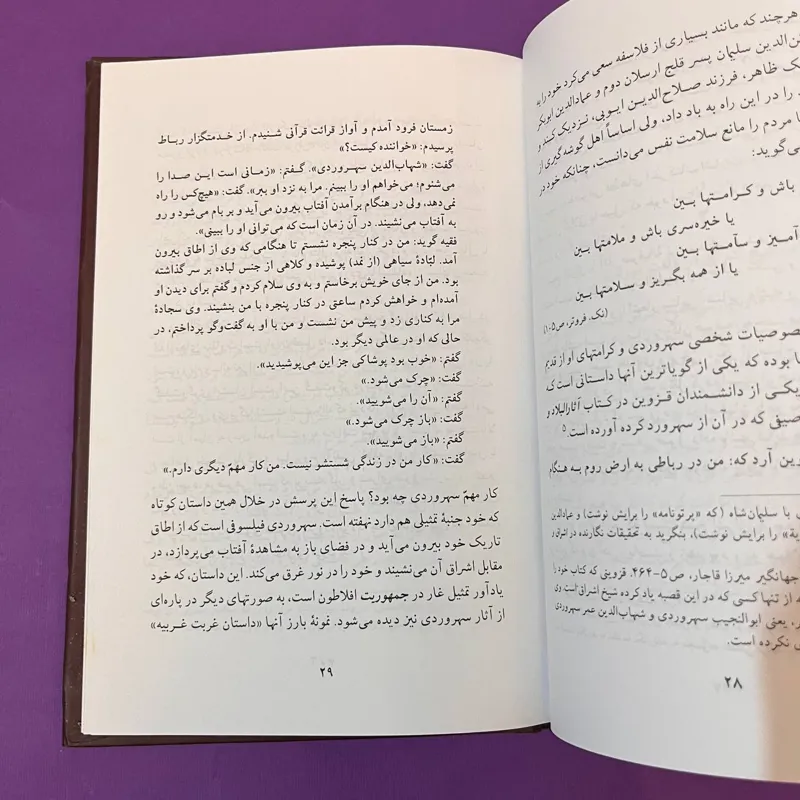 هرچند که مانند بسیاری از فلاسفه سعی می‌کرد خود را به
الدین سلیمان پسر قلج ارسلان دوم و عمادالدین ابوبکر
ظاهر، فرزند صلاح‌الدین ایوبی، نزدیک کند و
را در این راه به باد داد، ولی اساساً اهل گوشه‌گیری از
مردم را مانع سلامت نفس می‌دانست، چنانکه خود در
می‌گوید:
باش و کرامتها بین
یا خیره‌سری باش و ملامتها بین
آمیز و سآمتها بین
یا از همه بگریز و سلامتها بین
(نک. فروتر، ص۱۰۵)
خصوصیات شخصی سهروردی و کرامتهای او از قدیم
بوده که یکی از گویاترین آنها داستانی است که
یکی از دانشمندان قزوین در کتاب آثارالبلاد و
که در آن از سهرورد کرده آورده است.۵
آرد که: من در رباطی به ارض روم به هنگام
با سلیمان‌شاه (که «پرتونامه» را برایش نوشت) و عمادالدین
را برایش نوشت)، بنگرید به تحقیقات نگارنده در اشراق و
جهانگیر میرزا قاجار، ص۵-۴۶۴. قزوینی که کتاب خود را
از تنها کسی که در این قصبه یاد کرده شیخ اشراقی است. وی
یعنی ابوالنجیب سهروردی و شهاب‌الدین عمر سهروردی
نکرده است.
۲۸
زمستان فرود آمدم و آواز قرائت قرآنی شنیدم. از خدمتگزار رباط
پرسیدم: «خواننده کیست؟»
گفت: «شهاب‌الدین سهروردی». گفتم: «زمانی است این صدا را
می‌شنوم؛ می‌خواهم او را ببینم. مرا به نزد او ببر». گفت: «هیچ‌کس را راه
نمی‌دهد، ولی در هنگام برآمدن آفتاب بیرون می‌آید و بر بام می‌شود و رو
به آفتاب می‌نشیند. در آن زمان است که می‌توانی او را ببینی».
فقیه گوید: من در کنار پنجره نشستم تا هنگامی که وی از اطاق بیرون
آمد. لبّادهٔ سیاهی (از نمد) پوشیده و کلاهی از جنس لباده بر سر گذاشته
بود. من از جای خویش برخاستم و به وی سلام کردم و گفتم برای دیدن او
آمده‌ام و خواهش کردم ساعتی در کنار پنجره با من بنشیند. وی سجادهٔ
مرا به کناری زد و پیش من نشست و من با او به گفت‌وگو پرداختم، در
حالی که او در عالمی دیگر بود.
گفتم: «خوب بود پوشاکی جز این می‌پوشیدید».
گفت: «چرک می‌شود.»
گفتم: «آن را می‌شویید».
گفت: «باز چرک می‌شود.»
گفتم: «باز می‌شویید».
گفت: «کار من در زندگی شستشو نیست. من کار مهمّ دیگری دارم.»
کار مهمّ سهروردی چه بود؟ پاسخ این پرسش در خلال همین داستان کوتاه
که خود جنبهٔ تمثیلی هم دارد نهفته است. سهروردی فیلسوفی است که از اطاق
تاریک خود بیرون می‌آید و در فضای باز به مشاهدهٔ آفتاب می‌پردازد، در
مقابل اشراق آن می‌نشیند و خود را در نور غرق می‌کند. این داستان، که خود
یادآور تمثیل غار در جمهوریت افلاطون است، به صورتهای دیگر در پاره‌ای
از آثار سهروردی نیز دیده می‌شود. نمونهٔ بارز آنها «داستان غربت غربیه»
۲۹